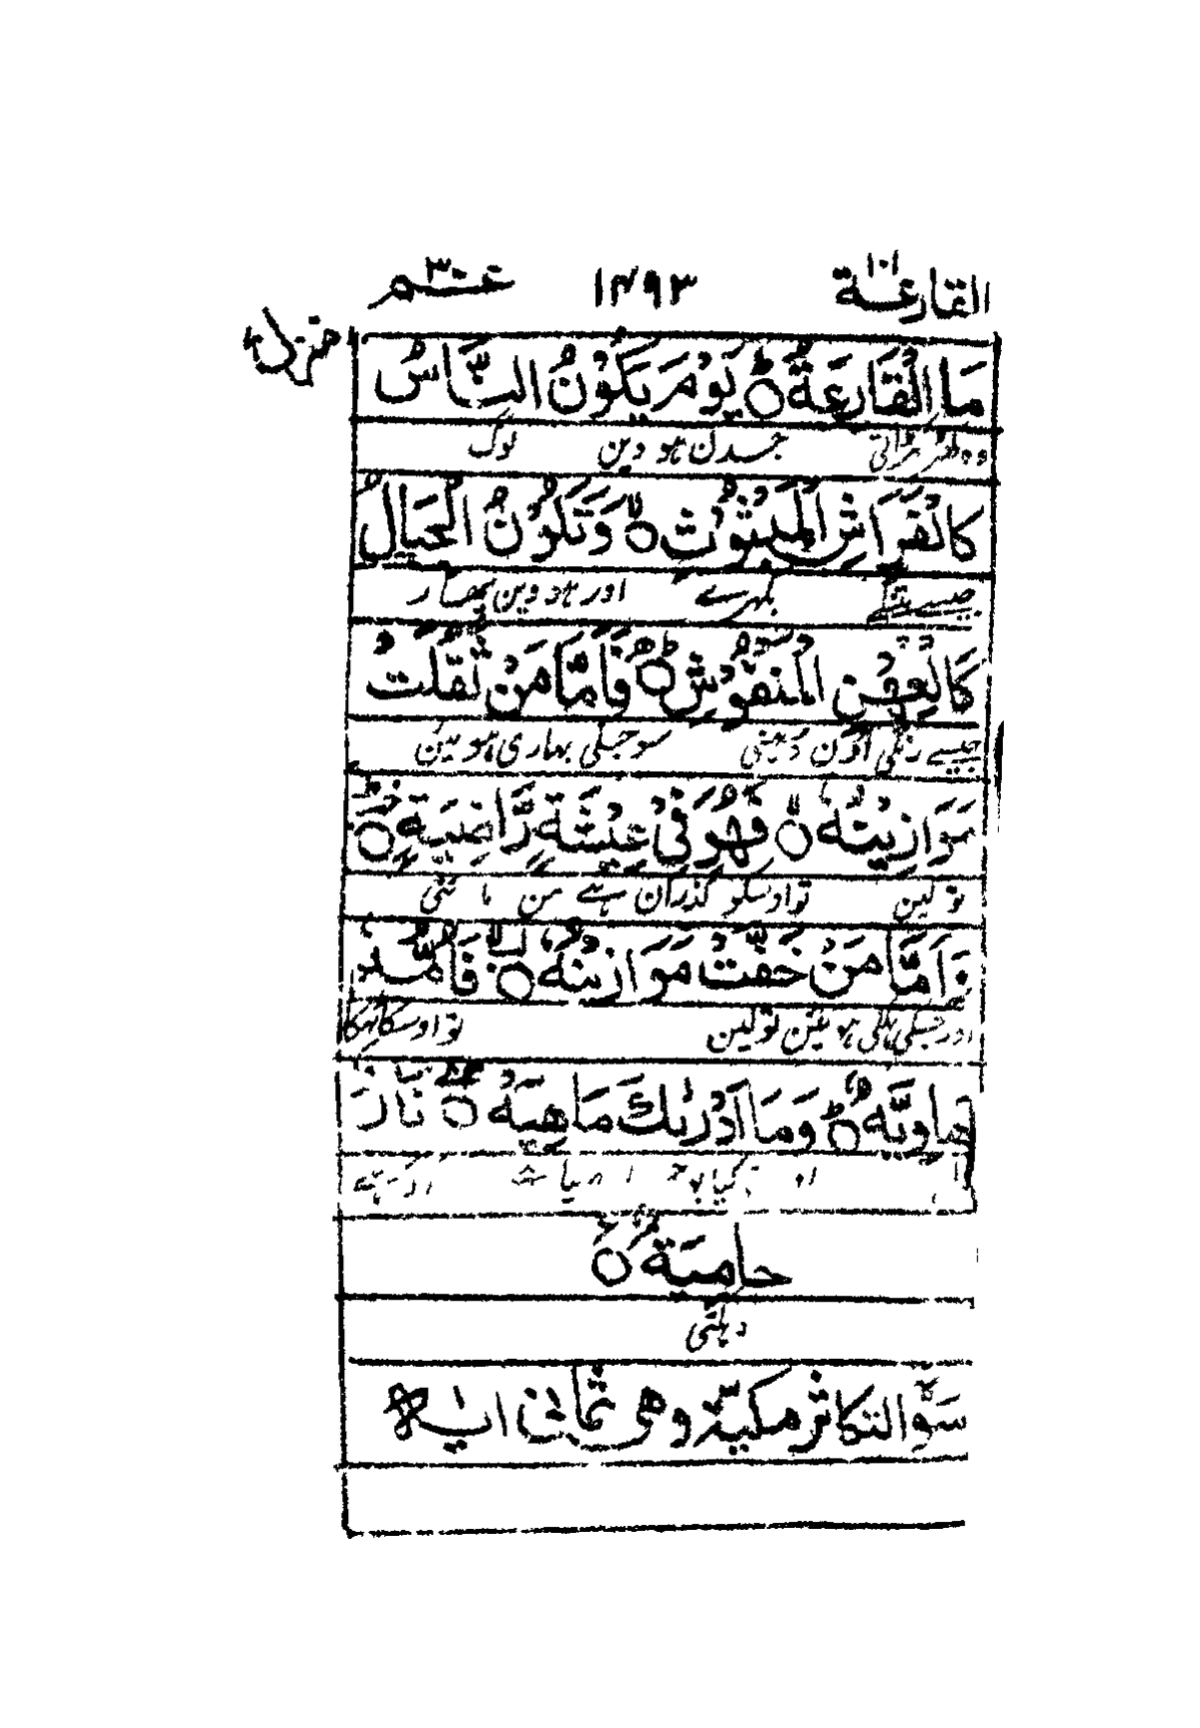 القارعة ١٠١ ١٤٩٣ عـــم ٣٠
منزل ٧
مَا الْقَارِعَةُ ۝ يَوْمَ يَكُوْنُ النَّاسُ
وہ کھڑکھڑاتی جسدن ہو وین لوگ
كَالْفَرَاشِ الْمَبْثُوْثِ ۝ وَتَكُوْنُ الْجِبَالُ
جیسے پتنگے بکھرے اور ہو وین پہاڑ
كَالْعِهْنِ الْمَنْفُوْشِ ۝ فَاَمَّا مَنْ ثَقُلَتْ
جیسے رنگی اون دھنی سو جسکی بھاری ہوئین
مَوَازِيْنُهٗ ۝ فَهُوَ فِيْ عِيْشَةٍ رَّاضِيَةٍ ۝
تولین تو اوسکو گذران ہے من مانتی
وَاَمَّا مَنْ خَفَّتْ مَوَازِيْنُهٗ ۝ فَاُمُّهٗ
اور جسکی ہلکی ہوئین تولین تو اوسکا ٹھکانا
هَاوِيَةٌ ۝ وَمَا اَدْرٰىكَ مَاهِيَهْ ۝ نَارٌ
حَامِيَةٌ ۝
دہکتی
سورة التكاثر مكية وهى ثمانى اية